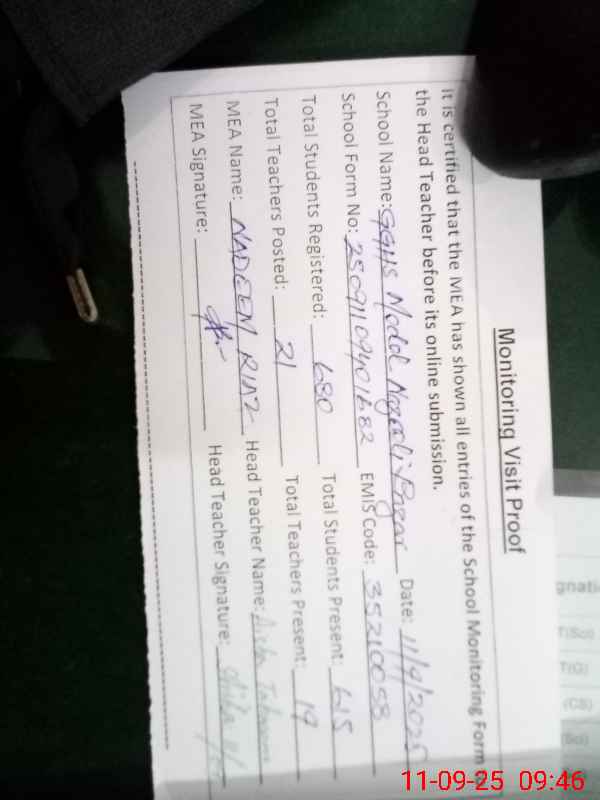 Monitoring Visit Proof
It is certified that the MEA has shown all entries of the School Monitoring Form to
the Head Teacher before its online submission.
School Name: GGHS Model Bazar Date: 11/9/2025
School Form No: 250911094016 82 EMIS Code: 35210058
Total Students Registered: 680 Total Students Present: 615
Total Teachers Posted: 21 Total Teachers Present: 19
MEA Name: NADEEM RIAZ Head Teacher Name:
MEA Signature: Head Teacher Signature:
T(Sci)
T(G)
(CS)
(Sci)
11-09-25 09:46